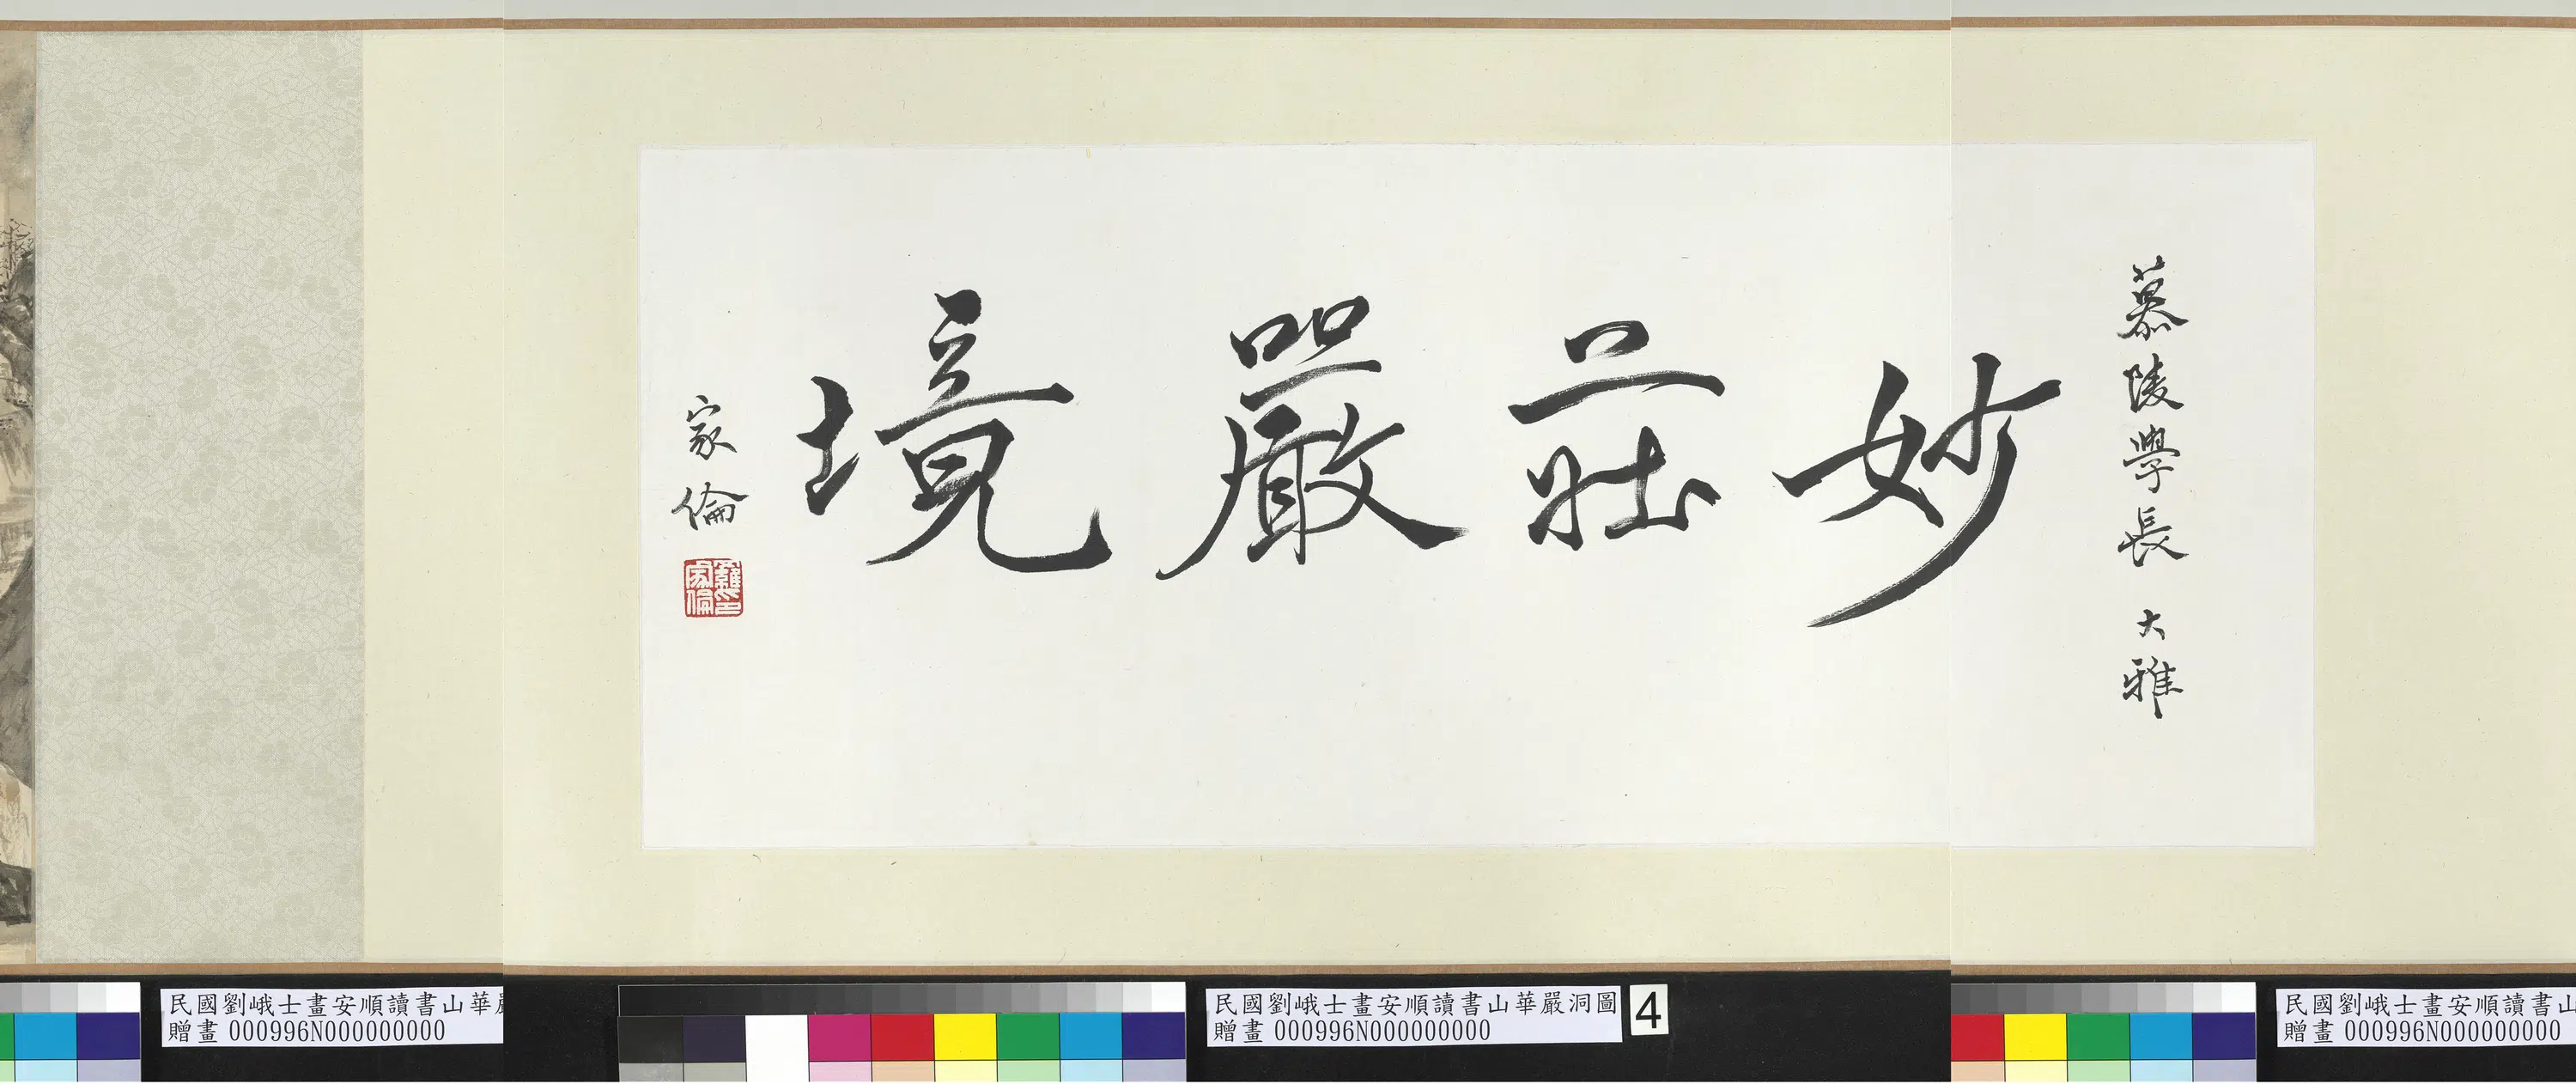 慕陵學長 大雅
妙莊嚴境
家倫
羅家倫印
民國劉峨士畫安順讀書山華嚴
贈畫 000996N000000000
民國劉峨士畫安順讀書山華嚴洞圖
贈畫 000996N000000000
4
民國劉峨士畫安順讀書山
贈畫 000996N000000000